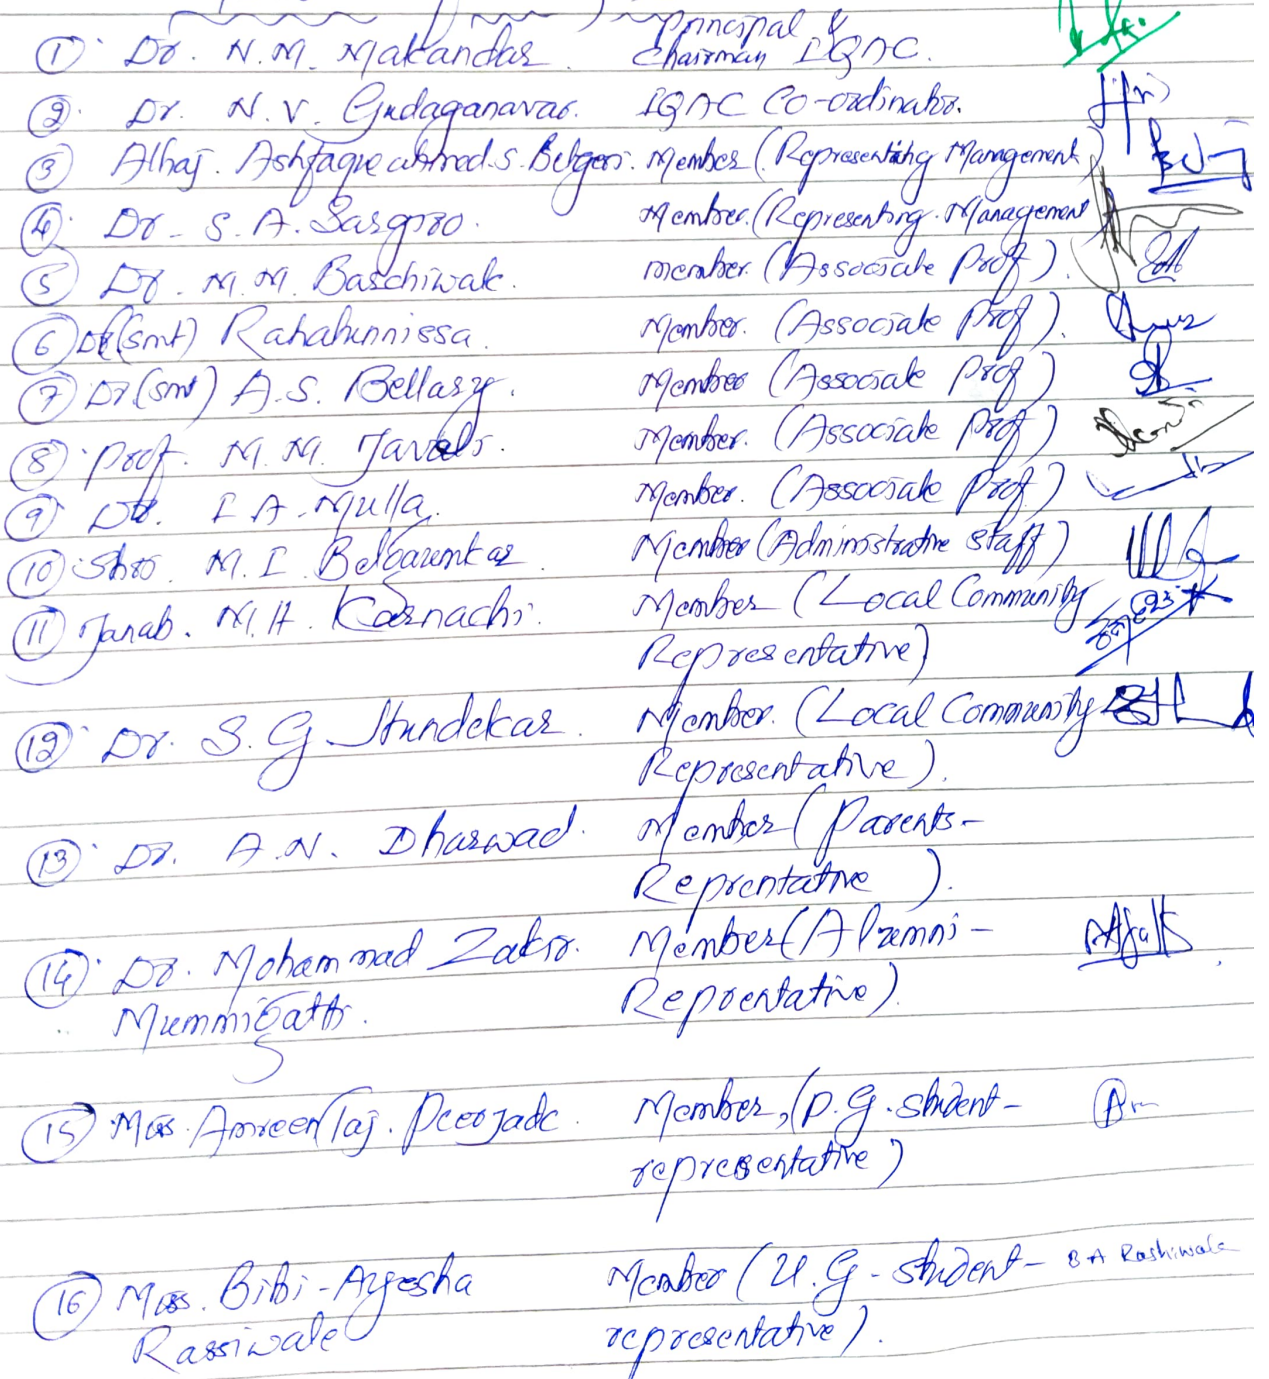 Principal &
① Dr. N.M. Makandar. Chairman IQAC.
② Dr. N. V. Gudaganavar. IQAC Co-ordinator.
③ Alhaj. Ashfaque ahmed. S. Betgeri. Member (Representing Management)
④ Dr. S. A. Sasgiro. Member. (Representing. Management)
⑤ Dr. M. M. Baschiwale. member. (Associate Prof).
⑥ Dr (smt) Rahabunnissa. Member. (Associate Prof).
⑦ Dr (smt) A. S. Bellary. Member (Associate Prof)
⑧ Prof. M. M. Javali. Member. (Associate Prof)
⑨ Dr. I A. Mulla. Member. (Associate Prof)
⑩ Shri. M. I Member (Administrative staff)
⑪ Janab. M. H. Kornachi. Member (Local Community
Representative)
⑫ Dr. S. G Hundekar. Member. (Local Community
Representative).
⑬ Dr. A. N. Dharwad. Member (Parents-
Reprentative ).
⑭ Dr. Mohammad Zakir. Member (Alumni -
Mummigatti. Reprentative).
⑮ Miss. Amreen Taj. Peerjade. Member, (P.G. student-
representative)
⑯ Miss. Bibi-Ayesha Member (U.G - student- B A Rashiwale
Rassiwale representative).